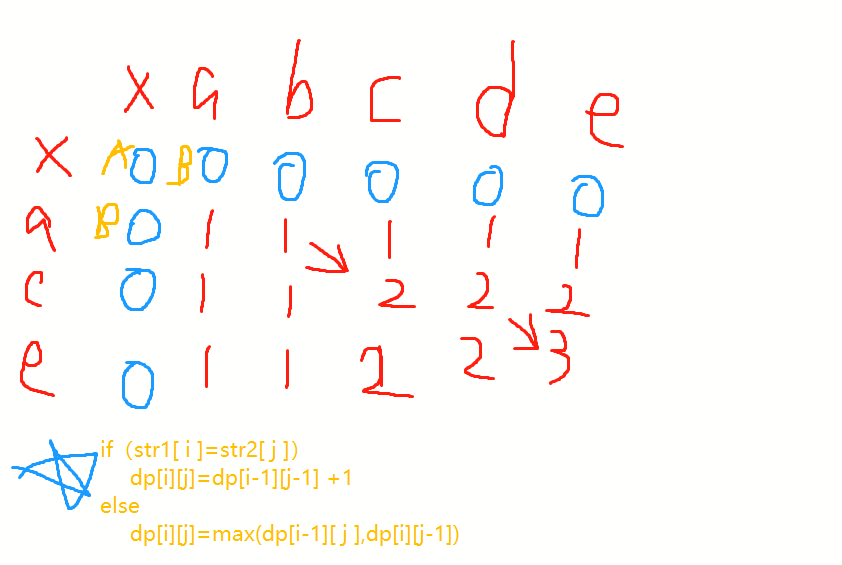 x a b c d e
x A 0 B 0 0 0 0 0
a B 0 1 1 1 1 1
c 0 1 1 2 2 2
e 0 1 1 2 2 3
if（str1[ i ]=str2[ j ]）
dp[i][j]=dp[i-1][j-1] +1
else
dp[i][j]=max(dp[i-1][ j ],dp[i][j-1])